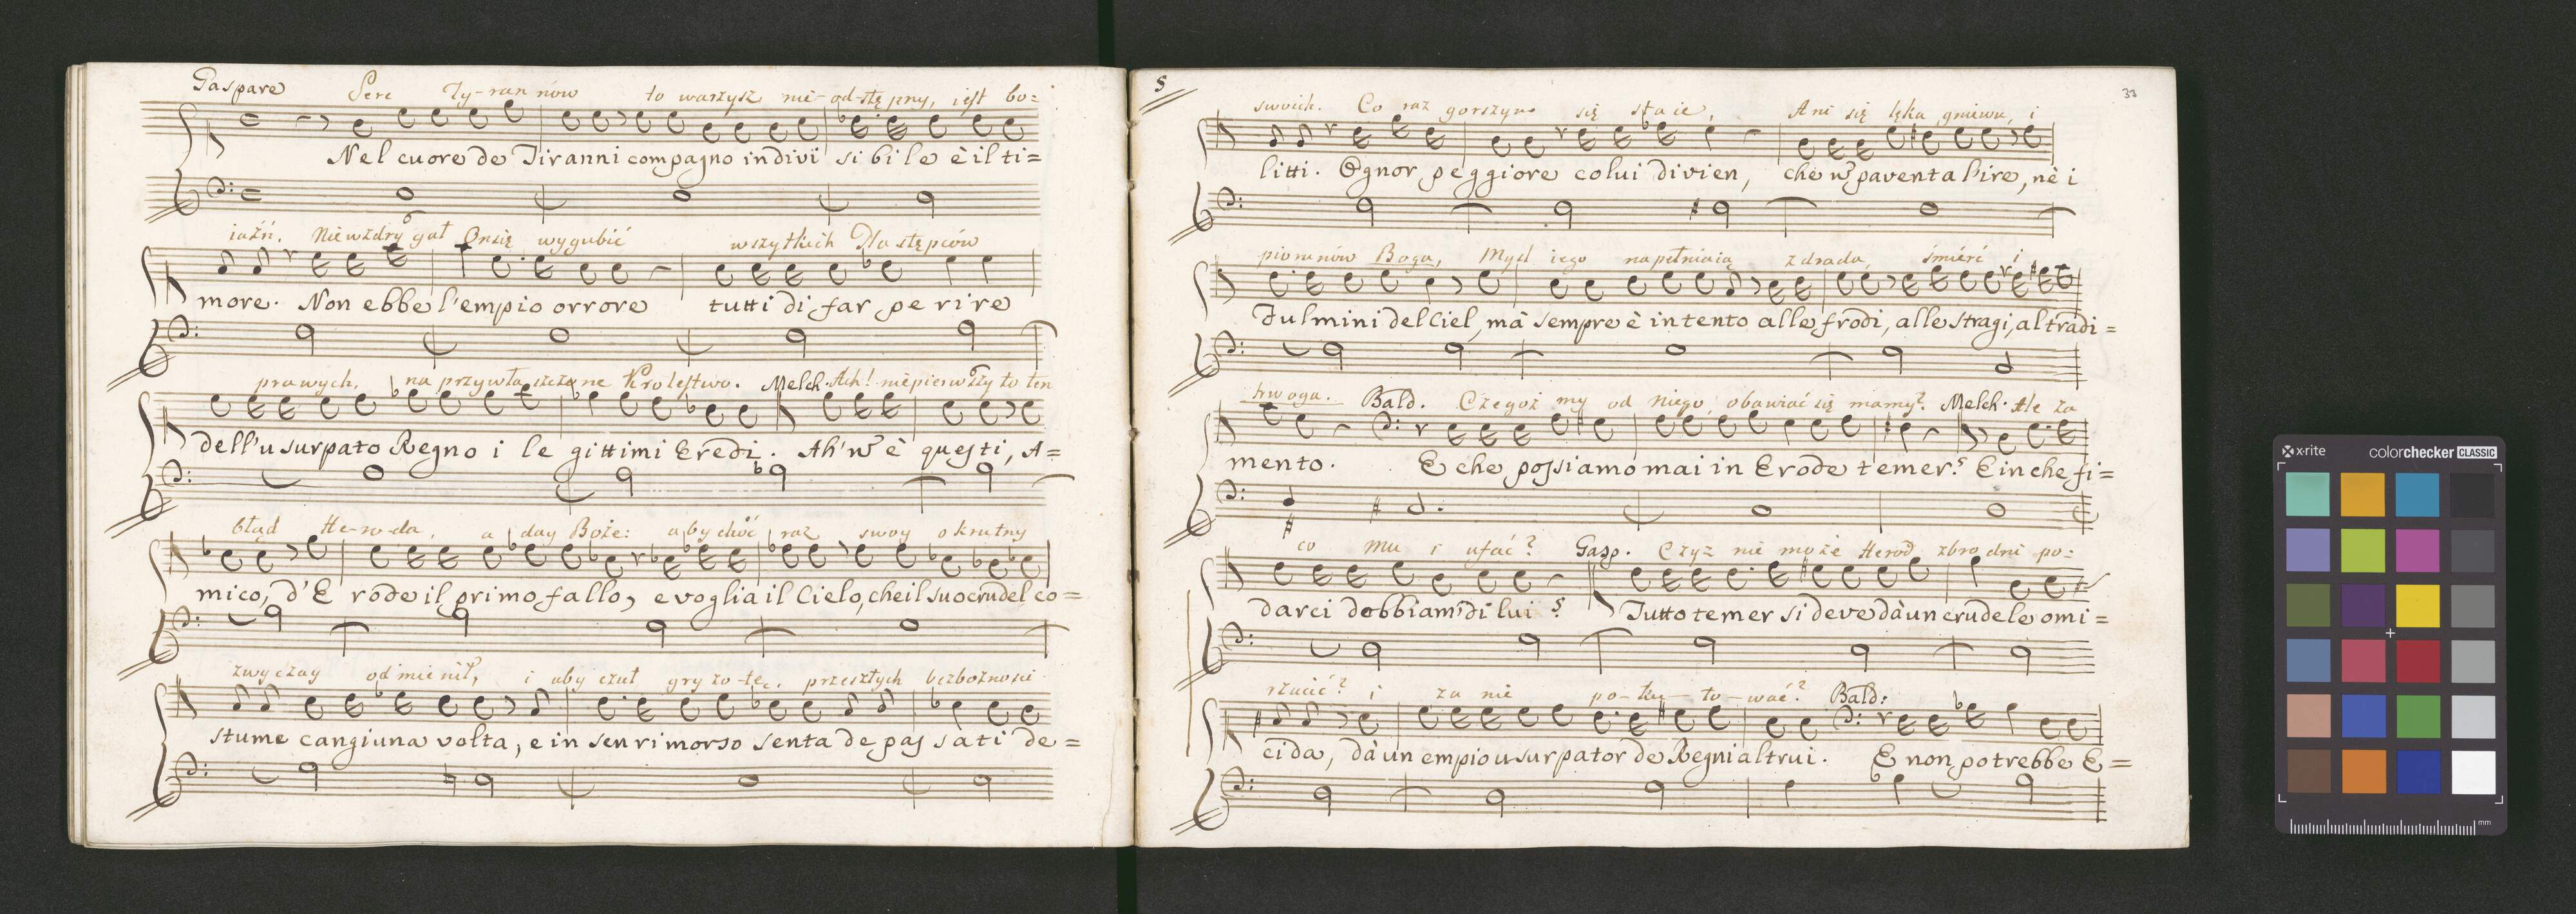 Gaspare Serc Ty-ran nów to warzysz nie-od-stę pny, iest bo=
Nel cuore de Tiranni compagno indivi si bi le è il ti=
iaźń. Nie wzdry gał Onsię wygubić wszytkich Na stępców
more. Non ebbe l'empio orrore tutti di far pe rire
prawych, na przywła szczone Krolestwo. Melch. Ach! niepierwszy to ten
dell'u surpato Regno i le gittimi Eredi. Ah' è questi, A=
błąd He-ro-da, a day Boże: aby choć raz swoy okrutny
mico, d'E rode il primo fallo, e voglia il Cielo, che il suo crudel co=
zwyczay odmienił, i aby czuł gryzo-tę, przeszłych bezbożności
stume cangi una volta, e in sen rimorso senta de pas sati de=
5
33
swoich. Co raz gorszym się staie, Ani się lęka gniewu, i
litti. Ognor peggiore colui divien, che paventa l'ire, nè i
piorunów Boga, Myśl iego napełniaią zdrada, śmierć i
Fulmini del Ciel, mà sempre è intento alle frodi, alle stragi, al tradi=
trwoga. Bald. Czegoż my od niego obawiać się mamy? Melch. Ale za
mento. E che possiamo mai in Erode temer? E in che fi=
co mu i ufać? Gasp. Czyz nie może Herod zbro dni po:
darci dobbiam' di lui? Tutto temer si deve dà un crudele omi=
rzucić? i za nie po-ku-to-wać? Bald:
cida, dà un empio usurpator de Regni altrui. E non potrebbe E=
x-rite colorchecker CLASSIC
mm